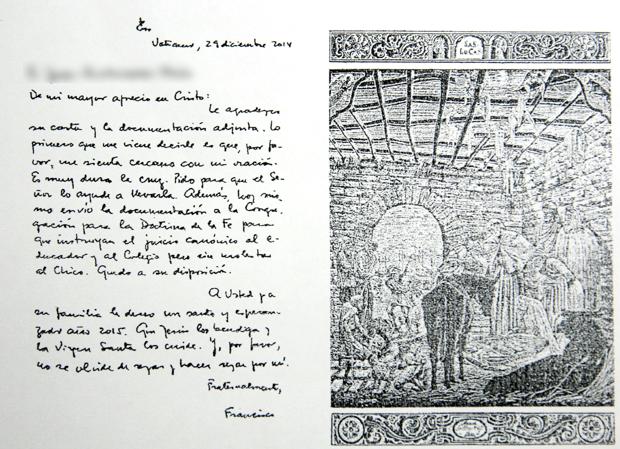 Vaticano, 29 diciembre 2014
De mi mayor aprecio en Cristo:
Le agradezco
su carta y la documentación adjunta. Lo
primero que me viene decirle es que, por fa-
vor, me sienta cercano con mi oración.
Es muy dura la cruz. Pido para que el Se-
ñor lo ayude a llevarla. Además, hoy mis-
mo envío la documentación a la Congre-
gación para la Doctrina de la Fe para
que instruyan el juicio canónico al e-
ducador y al Colegio pero sin molestar
al chico. Quedo a su disposición.
A Usted y a
su familia le deseo un santo y esperan-
zado año 2015. Que Jesús los bendiga y
la Virgen Santa los cuide. Y, por favor,
no se olvide de rezar y hacer rezar por mí.
Fraternalmente,
Francisco
SAS
LUC